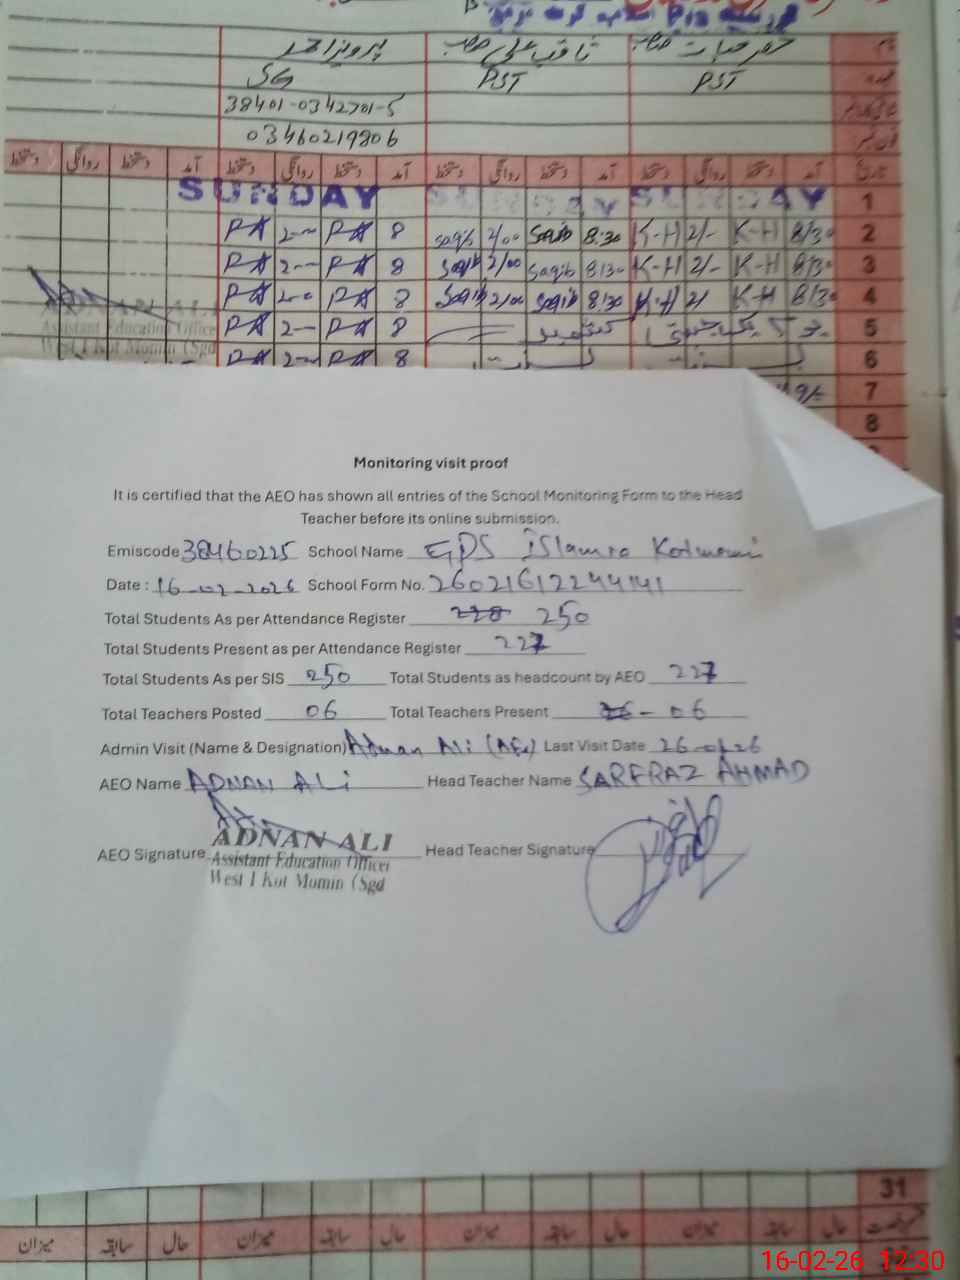 پرویز احمد ثاقب علی حیات نام
SG PST PST عہدہ
38401-0342701-5
03460219806
دستخط روانگی دستخط آمد دستخط روانگی دستخط آمد دستخط روانگی دستخط آمد دستخط روانگی دستخط آمد تاریخ
SUNDAY SUNDAY SUNDAY 1
8 8:30 Saqib 2/00 Saqib K-H 2/- K-H 8/30 2
8 8:30 Saqib 2/00 Saqib K-H 2/- K-H 8/30 3
8 8:30 Saqib 2/00 Saqib K-H 2/ K-H 8/30 4
8 کشمیر 5
8 6
7
8
ADNAN ALI
Assistant Education Officer
West I Kot Momin (Sgd
Monitoring visit proof
It is certified that the AEO has shown all entries of the School Monitoring Form to the Head
Teacher before its online submission.
Emiscode 38460225 School Name GPS Islamia Kotmomin
Date : 16-02-2026 School Form No. 26021612244141
Total Students As per Attendance Register 228 250
Total Students Present as per Attendance Register 227
Total Students As per SIS 250 Total Students as headcount by AEO 227
Total Teachers Posted 06 Total Teachers Present 06
Admin Visit (Name & Designation) Adnan Ali (AEO) Last Visit Date 26-01-26
AEO Name ADNAN ALI Head Teacher Name SARFRAZ AHMAD
AEO Signature Head Teacher Signature
ADNAN ALI
Assistant Education Officer
West I Kot Momin (Sgd
31
میزان سابقہ حال میزان سابقہ حال میزان سابقہ حال میزان سابقہ حال
16-02-26 12:30